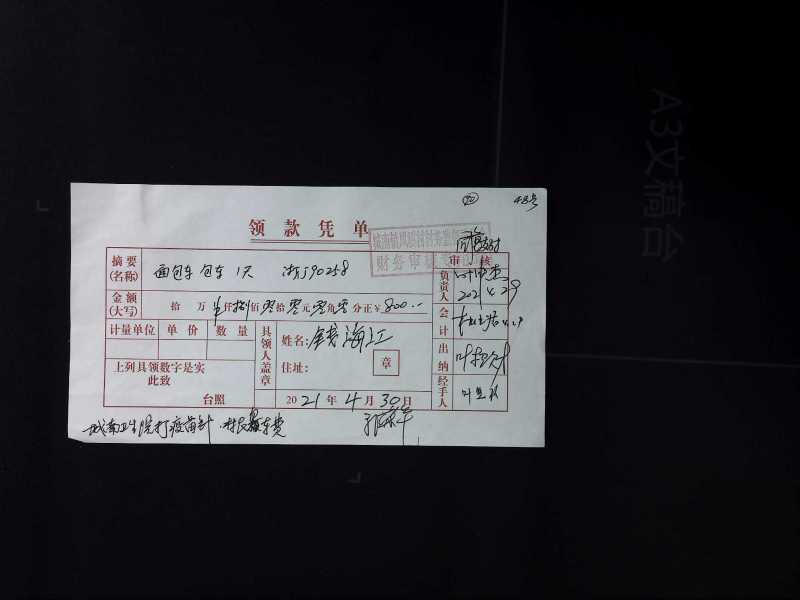 ⑳ 48号
领款凭单
同意支付
财务审核
摘要(名称) 面包车包车1天 浙J90258
审核
金额(大写) 拾 万 仟 捌佰 零拾 零元 零角 零分正 ¥800.--
负责人 2021.4.29
计量单位 单价 数量
具领人盖章 姓名: 钱海江
会计 4.29
上列具领数字是实
此致
台照
住址: 章
出纳
2021年4月30日
经手人
城南卫生院打疫苗针 村民 车费
A3文稿台